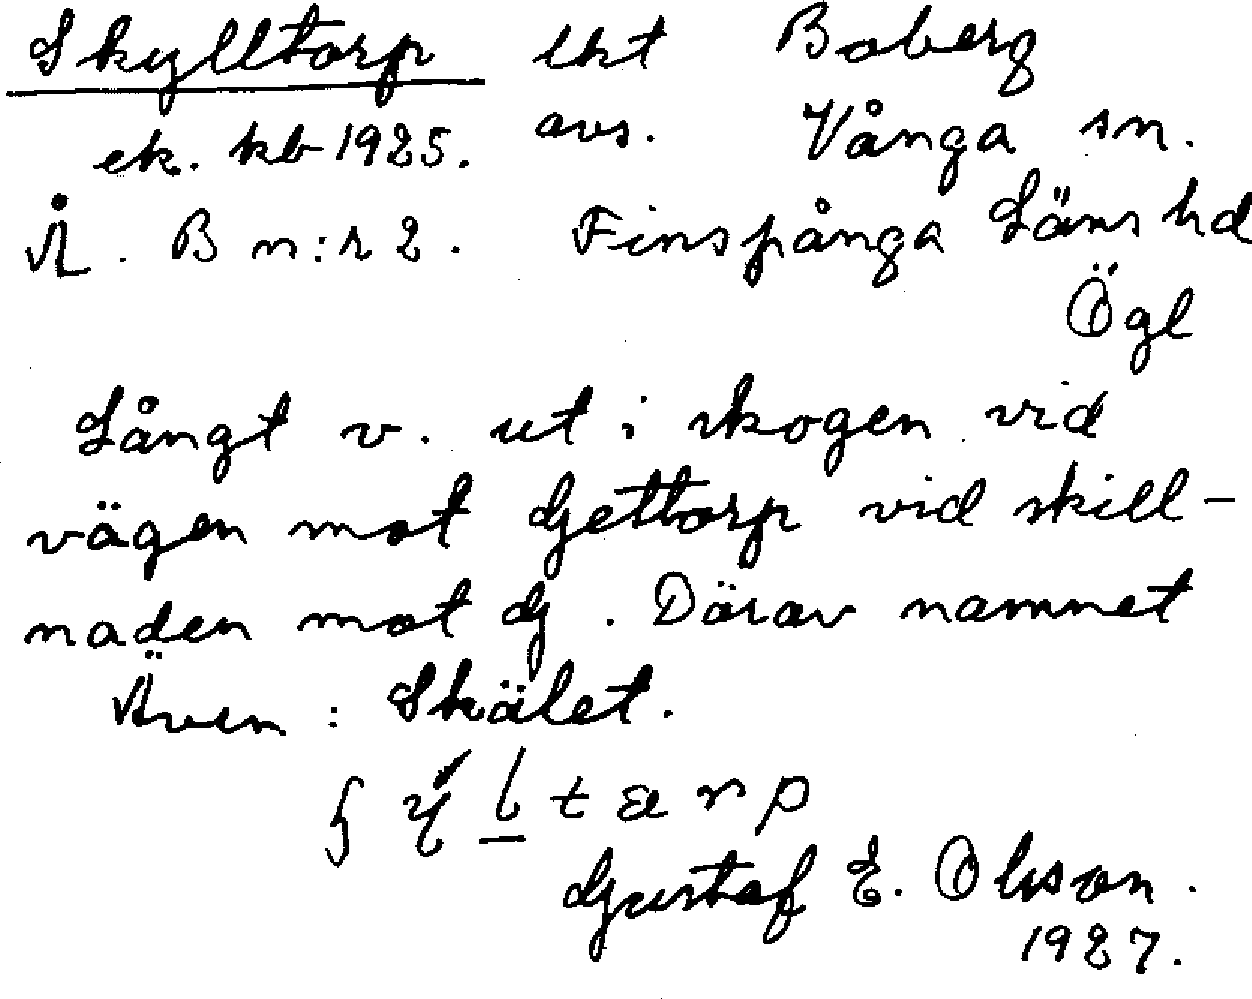 Skylltorp lht Boberg
ek. kb 1925. avs. Vånga sn.
Å. B n:r 2. Finspånga Läns hd
Ögl
Långt v. ut i skogen vid
vägen mot Gettorp vid skill-
naden mot G. Därav namnet
Även: Skälet.
Gustaf E. Olsson.
1927.